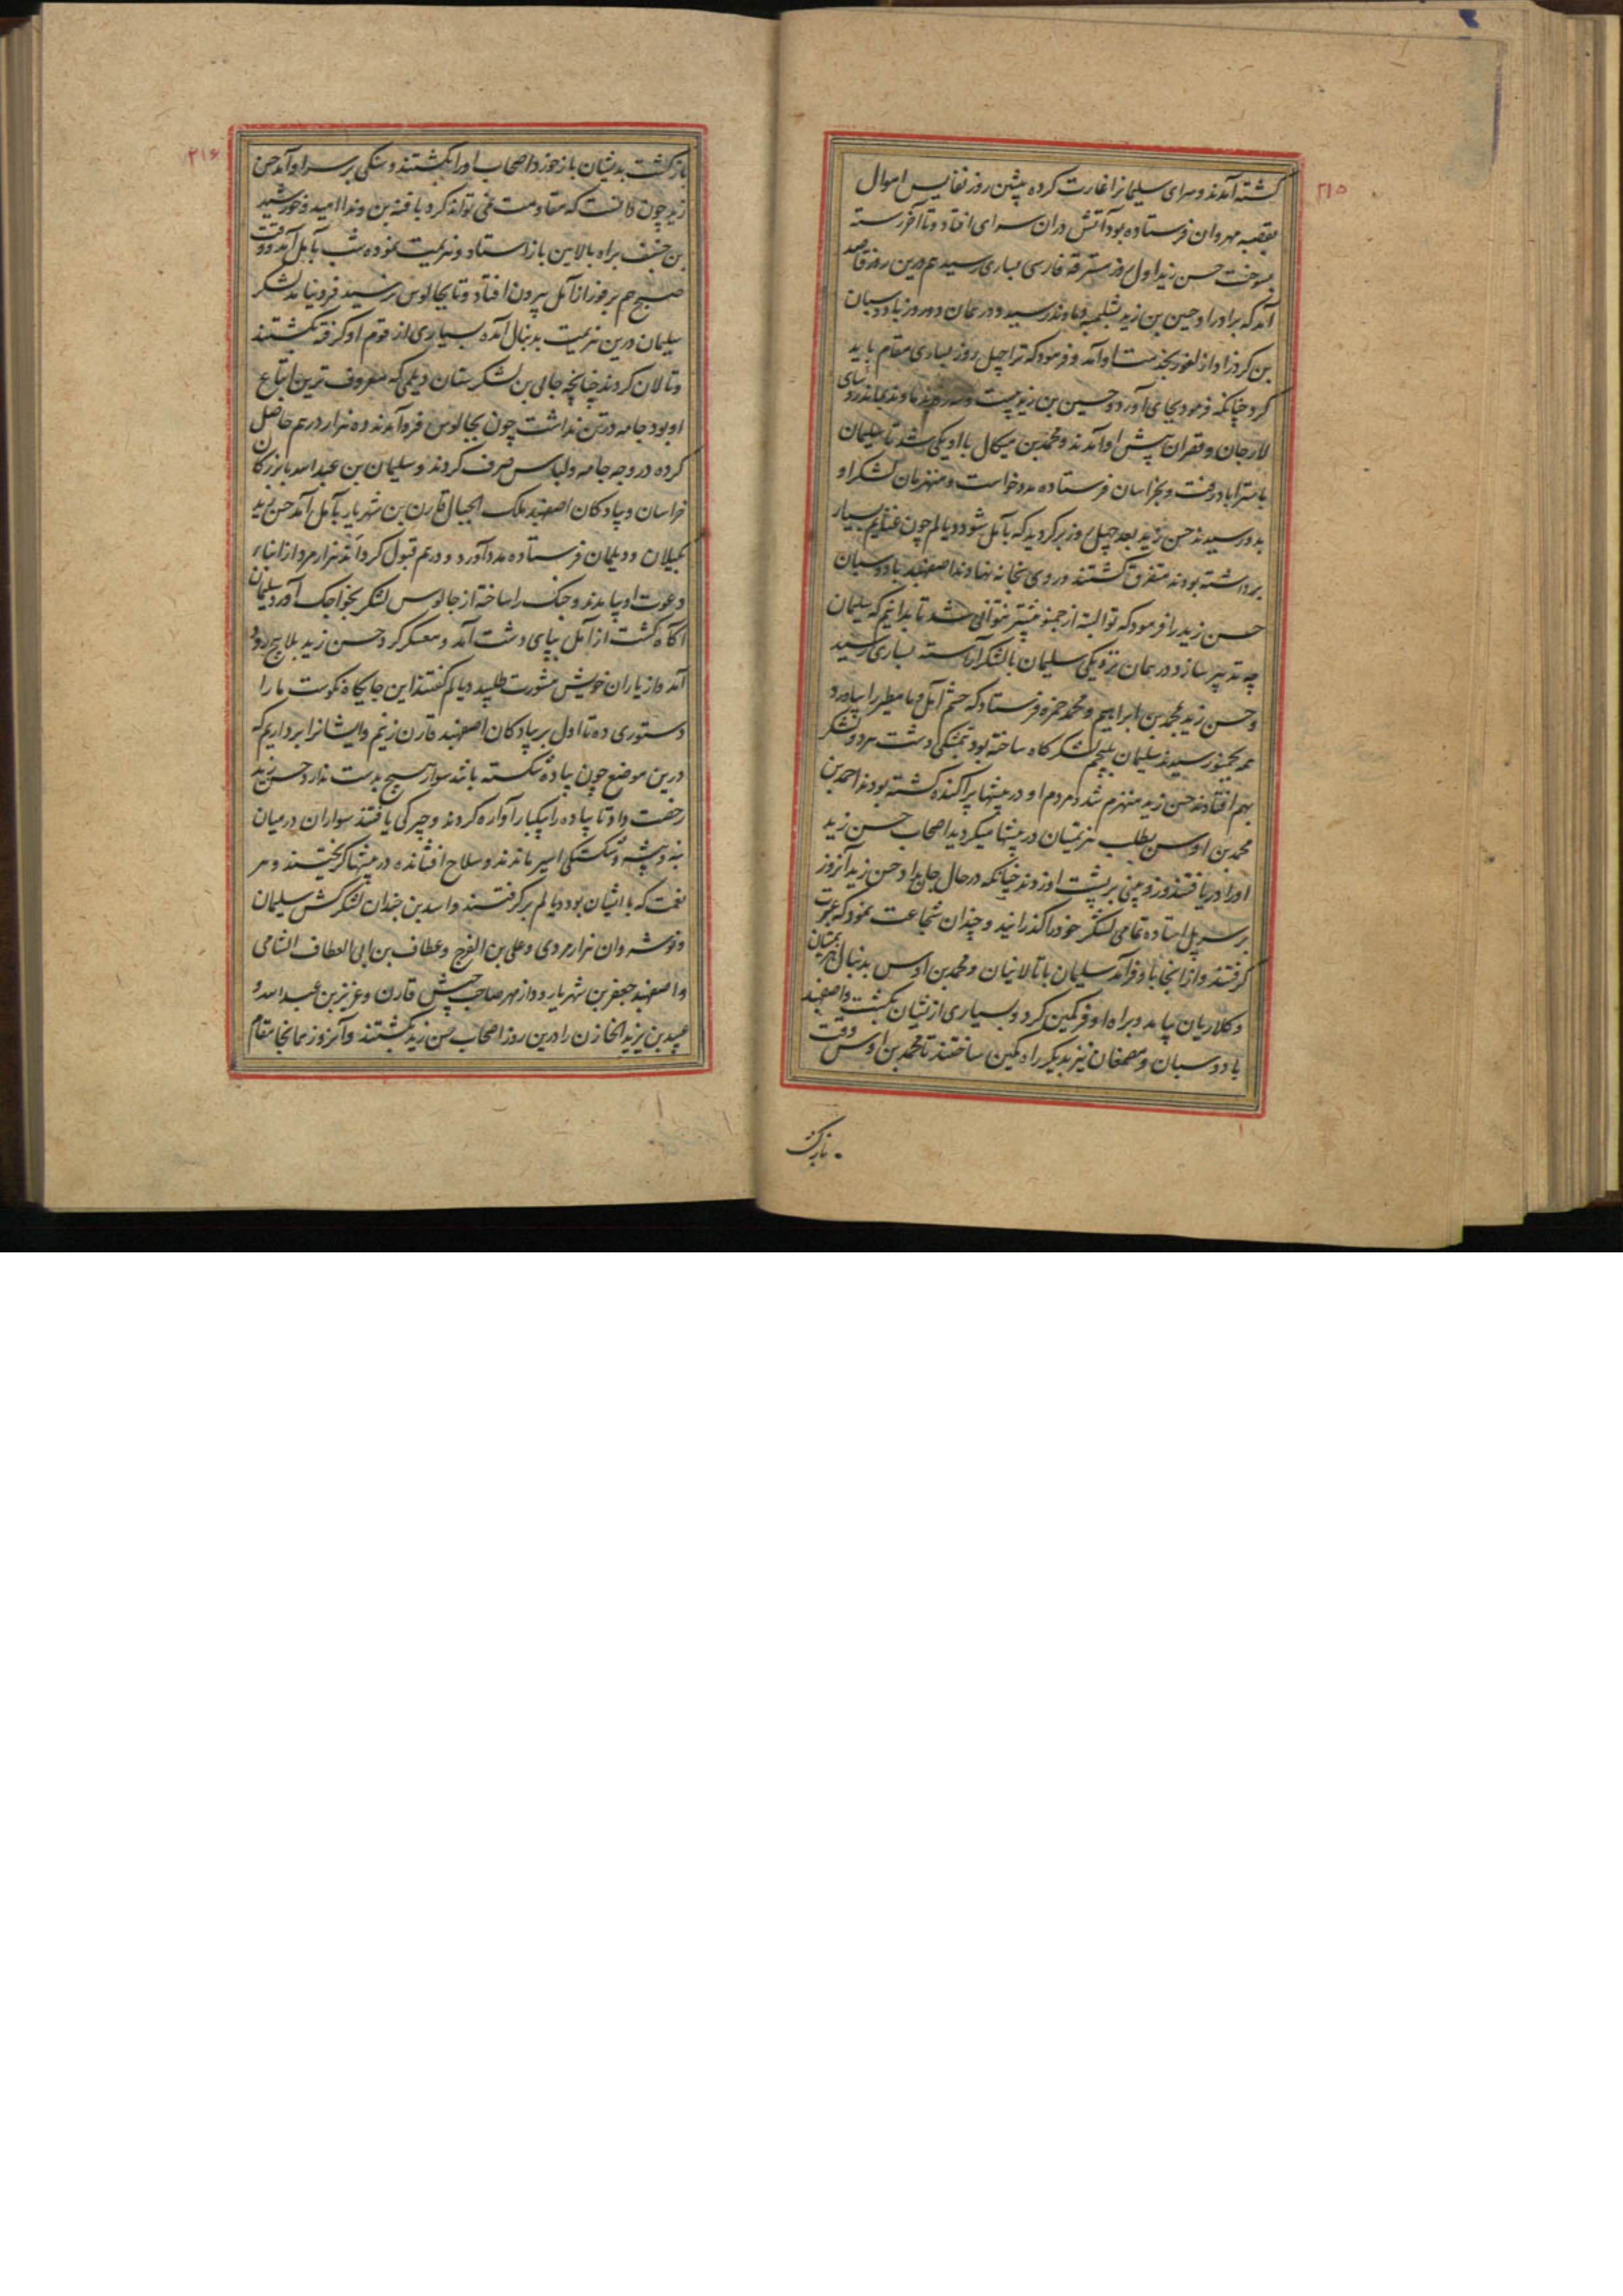 ٢١٥
گشته آمدند و سرای سلیمانرا غارت کرده پیشین روز نفایس اموال
بقصبه مهروان فرستاده بود آتش دران سرای افتاد و تا آخر رسته
بسوخت حسن زید اول روز سترقه فارسی بساری رسید هم درین روز قاصد
آمد که برادر او حسین بن زید بشلمبه دماوند رسید و در همان دو روز بادوسبان
بن کردزاد از لفور بخدمت او آمد و فرمود که ترا چهل روز بساری مقام باید
کرد چنانکه فرمود بجای آورد و حسین بن زید بیست و سه روز بدماوند بماند رؤسای
لارجان و قصران پیش او آمدند و محمد بن میکال با او یکی شد تا سلیمان
باستراباد رفت و بخراسان فرستاده مدد خواست و منهزمان لشکر او
بدو رسیدند حسن زید بعد چهل روز برگردید که بآمل شود دیالم چون غنایم بسیار
برداشته بودند متفرق گشتند و روی بخانه نهادند اصفهبد بادوسبان
حسن زید را فرمود که تو البته از چمنو پیشتر نتوانی شد تا بدانیم که سلیمان
چه تدبیر سازد در همان نزدیکی سلیمان با لشکر آراسته بساری رسید
و حسن زید محمد بن ابراهیم و محمد حمزه فرستاد که حشم آمل و مامطیر را بیاورد
همه بچمنو رسیدند سلیمان بلیجم لشکرگاه ساخته بود بتمشکی دشت هر دو لشکر
بهم افتادند حسن زید منهزم شد و مردم او در بیشها پراکنده گشته بودند احمد بن
محمد بن اوس بطلب هزیمتیان در بیشها میگردید اصحاب حسن زید
او را دریافتند و زوپینی بر پشت او زدند چنانکه در حال جان بداد و حسن زید آنروز
بر سر پل استاده تمامی لشکر خود را گذرانید و چندان شجاعت نمود که عبرت
گرفتند و از انجا باز فرا آمد سلیمان با تالانیان و محمد بن اوس بدنبال هزیمتیان
و کلاریان بیامد و براه او فر کمین کرد و بسیاری ازیشان بکشت و اصفهبد
بادوسبان و مصمغان نیز بدیگر راه کمین ساختند تا محمد بن اوس وقت
بازگشت
٢١۶
بازگشت بدیشان باز خورد اصحاب او را بکشتند و سنگی بر سر او آمد حسن
زید چون دانست که مقاومت نمی تواند کرد با فنه بن ونداامید و خورشید
بن جسنف براه بالامین باز استاد و هزیمت نموده شب بآمل آمد و وقت
صبح هم بر فور از آمل بیرون افتاد و تا بچالوس نرسید فرو نیامد لشکر
سلیمان درین هزیمت بدنبال آمده بسیاری از قوم او گرفته بکشتند
و تالان کردند چنانچه جالی بن لشکرستان دیلمی که معروف ترین اتباع
او بود جامه در تن نداشت چون بچالوس فرو آمدند ده هزار درهم حاصل
کرده در وجه جامه و لباس صرف کردند و سلیمان بن عبد الله با بزرگان
خراسان و پیادگان اصفهبد ملک الجبال قارن بن شهریار بآمل آمد حسن زید
بگیلان و دیلمان فرستاده مدد آورد و درهم قبول کرد اند هزار مرد از ابناء
دعوت او بیامدند و جنگ را ساخته از چالوس لشکر بخواجک آورد سلیمان
آگاه گشت از آمل بپای دشت آمد و معسکر کرد حسن زید بلاویج رود
آمد و از یاران خویش مشورت طلبید دیالم گفتند این جایگاه نیکوست ما را
دستوری ده تا اول بر پیادگان اصفهبد قارن زنیم و ایشانرا برداریم که
درین موضع چون پیاده شکسته باشد سوار هیچ بدست ندارد حسن زید
رخصت داد تا پیاده را بیکبار آواره کردند و چیرگی یافتند سواران در میان
نه و بیشه و شکستگی اسیر ماندند و سلاح افشانده در بیشها گریختند و هر
نعمت که با ایشان بود دیالم برگرفتند و اسد بن جندان لشکرکش سلیمان
و نوشروان هزارمردی و علی بن الفرج و عطاف بن ابی العطاف الشامی
و اصفهبد جعفر بن شهریار و دازمهر صاحب جیش قارن و عزیز بن عبد الله و
عبید بن یزید الخازن را درین روز اصحاب حسن زید بکشتند و آنروز همانجا مقام